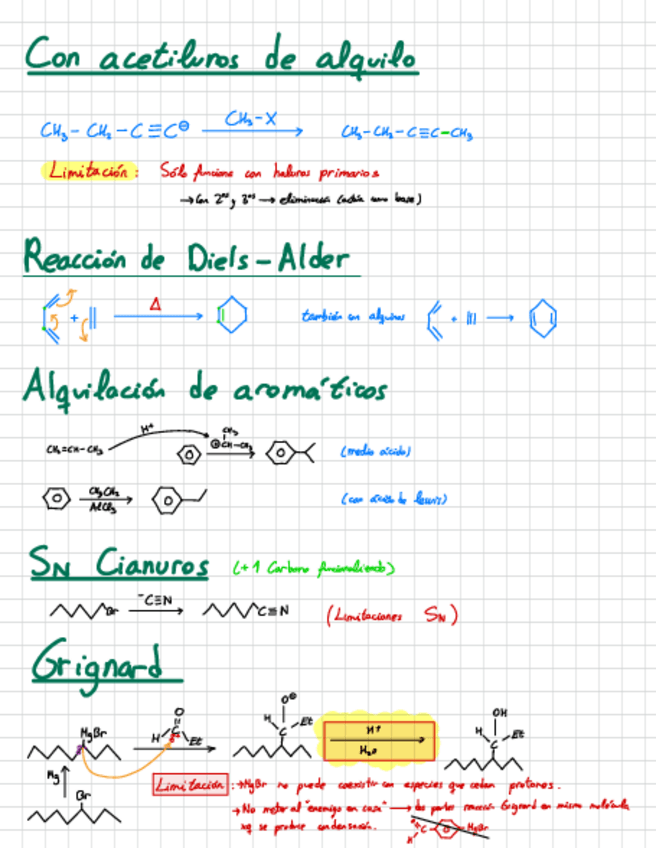 Con acetiluros de alquilo
CH₃-CH₂-C≡C⊖ CH₃-X CH₃-CH₂-C≡C-CH₃
Limitación: Sólo funciona con haluros primarios
→ Con 2ᵒˢ y 3ᵒˢ → eliminación (actúa como base)
Reacción de Diels-Alder
+ Δ también con alquinos + →
Alquilación de aromáticos
CH₂=CH-CH₃ H⁺ CH₃ ⊕CH-CH₃ (medio ácido)
AlCl₃ (con ácido de Lewis)
SN Cianuros (+1 Carbono funcionalizado)
Br ⁻C≡N C≡N (Limitaciones SN)
Grignard
MgBr H C O Et O⊖ H C Et H⁺ H₂O OH H C Et
Mg
Br
Limitación: → MgBr no puede coexistir con especies que cedan protones.
→ No meter al "enemigo en casa" → dos partes reacción Grignard en misma molécula
xq se produce condensación. H C MgBr